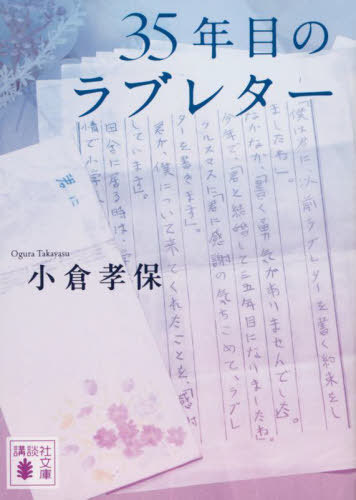 35年目の
ラブレター
「僕は君に、以前ラブレターを書く約束をし
ましたね」。
なかなか、書く勇気がわりませんでした。
今年で、「君と結婚」して三五年目になりましたね。
クリスマスに君に感謝の気もちこめて、ラブレ
ターを書きます」。
君が、僕について来てくれたことを、「感
していま
田舎に居る時は、
情で小
君に
Ogura Takayasu
小倉孝保
講談社文庫